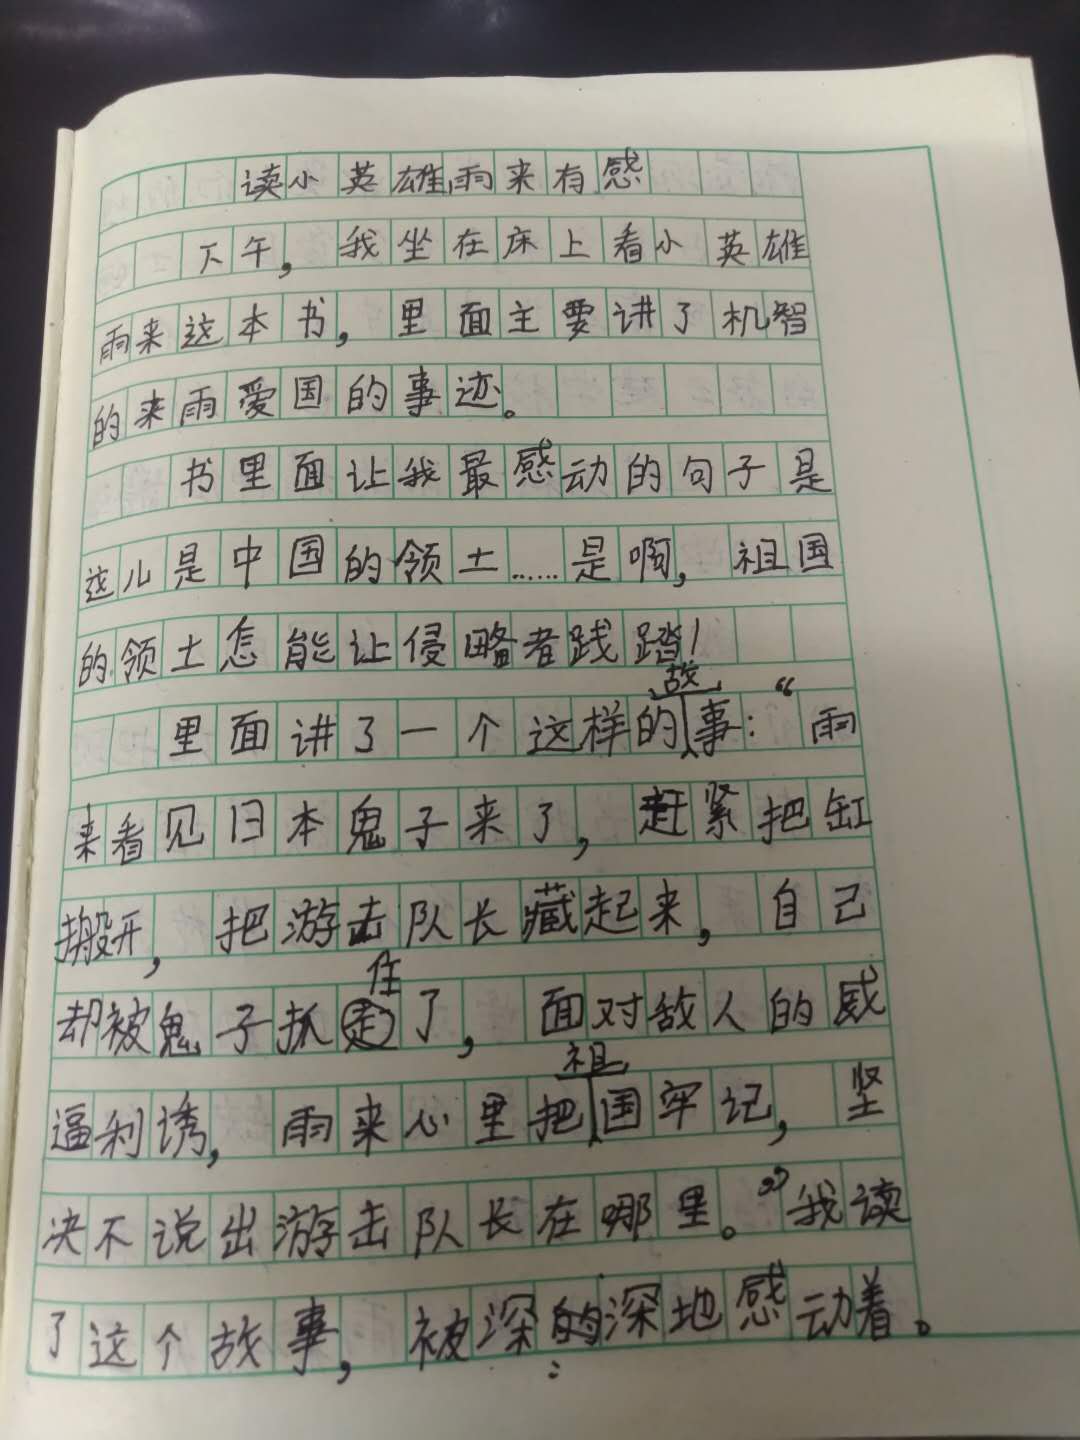 读小英雄雨来有感
下午，我坐在床上看小英雄
雨来这本书，里面主要讲了机智
的来雨爱国的事迹。
书里面让我最感动的句子是
这儿是中国的领土……是啊，祖国
的领土怎能让侵略者践踏！
里面讲了一个这样的故事：“雨
来看见日本鬼子来了，赶紧把缸
搬开，把游击队长藏起来，自己
却被鬼子抓住了，面对敌人的威
逼利诱，雨来心里把祖国牢记，坚
决不说出游击队长在哪里。”我读
了这个故事，被深深地感动着。